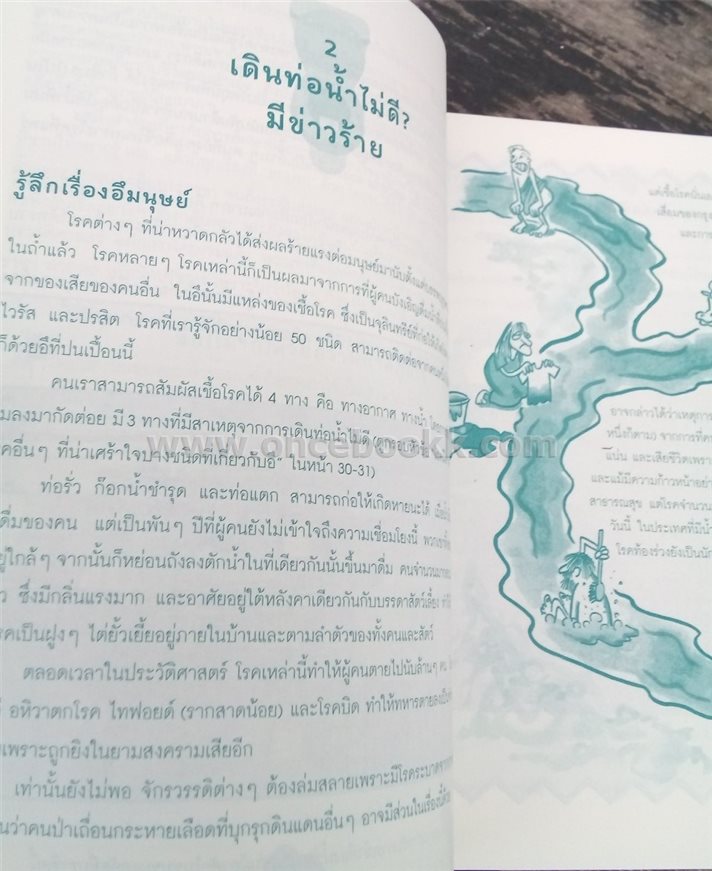 2
เดินท่อน้ำไม่ดี?
มีข่าวร้าย
รู้ลึกเรื่องอึมนุษย์
โรคต่างๆ ที่น่าหวาดกลัวได้ส่งผลร้ายแรงต่อมนุษย์มานับตั้งแต่
ในถ้ำแล้ว โรคหลายๆ โรคเหล่านี้ก็เป็นผลมาจากการที่ผู้คนบังเอิญ
จากของเสียของคนอื่น ในอึนั้นมีแหล่งของเชื้อโรค ซึ่งเป็นจุลินทรีย์ที่ก่อให้เกิด
ไวรัส และปรสิต โรคที่เรารู้จักอย่างน้อย 50 ชนิด สามารถติดต่อจาก
ก็ด้วยอึที่ปนเปื้อนนี้
คนเราสามารถสัมผัสเชื้อโรคได้ 4 ทาง คือ ทางอากาศ ทางน้ำ
มลงมากัดต่อย มี 3 ทางที่มีสาเหตุจากการเดินท่อน้ำไม่ดี
คอื่นๆ ที่น่าเศร้าใจบางชนิดที่เกี่ยวกับอึ" ในหน้า 30-31)
ท่อรั่ว ก๊อกน้ำชำรุด และท่อแตก สามารถก่อให้เกิดหายนะได้
ดื่มของคน แต่เป็นพันๆ ปีที่ผู้คนยังไม่เข้าใจถึงความเชื่อมโยงนี้
ยู่ใกล้ๆ จากนั้นก็หย่อนถังลงตักน้ำในที่เดียวกันนั้นขึ้นมาดื่ม คนจำนวนมาก
ว ซึ่งมีกลิ่นแรงมาก และอาศัยอยู่ใต้หลังคาเดียวกันกับบรรดาสัตว์เลี้ยง
รคเป็นฝูงๆ ไต่ยั้วเยี้ยอยู่ภายในบ้านและตามลำตัวของทั้งคนและสัตว์
ตลอดเวลาในประวัติศาสตร์ โรคเหล่านี้ทำให้ผู้คนตายไปนับล้านๆ คน
อหิวาตกโรค ไทฟอยด์ (รากสาดน้อย) และโรคบิด ทำให้ทหารตายลง
เพราะถูกยิงในยามสงครามเสียอีก
เท่านั้นยังไม่พอ จักรวรรดิต่างๆ ต้องล่มสลายเพราะมีโรคระบาด
นว่าคนป่าเถื่อนกระหายเลือดที่บุกรุกดินแดนอื่นๆ อาจมีส่วนในเรื่องนี้
www.oncebookk.com
แต่เชื้อโรคนั้น
เสื่อมของกรุง
และการ
อาจกล่าวได้ว่าเหตุการ
หนึ่งก็ตาม) จากการที่
แน่น และเสียชีวิตเพราะ
และแม้มีความก้าวหน้าอย่า
สาธารณสุข แต่โรคจำนวน
วันนี้ ในประเทศที่มีน้ำ
โรคท้องร่วงยังเป็น